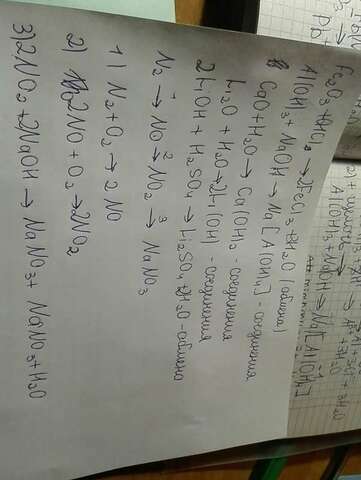 Fe₂O₃ + 6HCl → 2FeCl₃ + 3H₂O (обмена)
Al(OH)₃ + NaOH → Na[Al(OH)₄] - соединения
CaO + H₂O → Ca(OH)₂ - соединения
Li₂O + H₂O → 2Li(OH) - соединения
2LiOH + H₂SO₄ → Li₂SO₄ + 2H₂O - обмена
N₂ →¹ NO →² NO₂ →³ NaNO₃
1) N₂ + O₂ → 2NO
2) 2NO + O₂ → 2NO₂
3) 2NO₂ + 2NaOH → NaNO₃ + NaNO₃ + H₂O
Al(OH)₃ + NaOH → Na[Al(OH)₄]